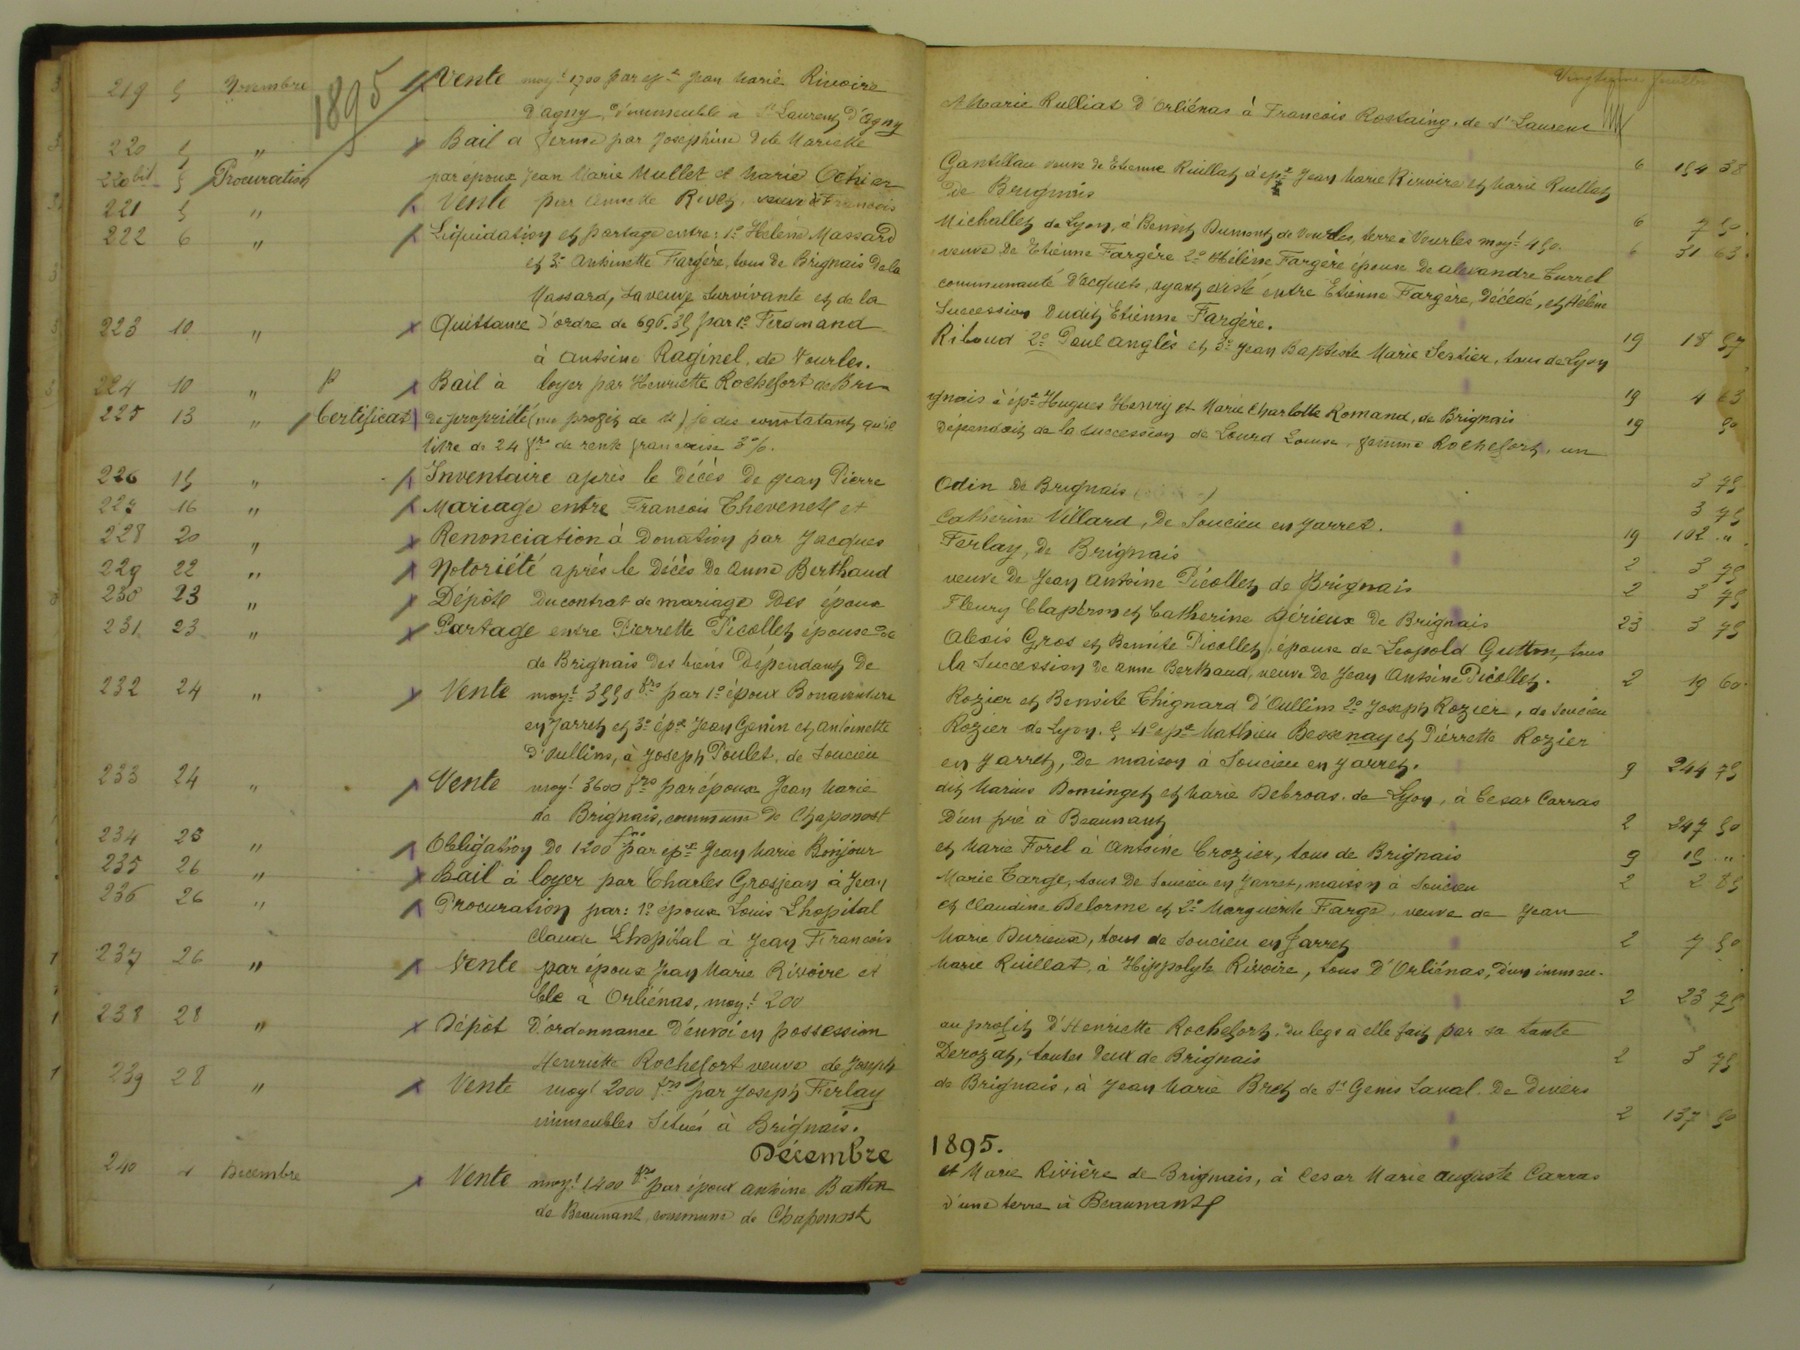 Vingtième feuillet
1895
219 5 Novembre Vente moyt 1700 par epx Jean Marie Rivoire
et Marie Rulliat d'Orliénas à François Rostaing, de St Laurent
d'agny, d'immeuble à St Laurent d'Agny
220 5 " Bail à ferme par Josephine dite Mariette
Gantillau veuve de Etienne Ruillat à epx Jean Marie Rivoire et Marie Ruillat 6 154 38
220 bis 5 Procuration par époux Jean Marie Mullet et Marie
de Brignais
221 5 " Vente par Rivet, veuve François
Michallet de Lyon, à Benoit Dumont de Vourles, terre à Vourles moyt 450. 6 7 50
222 6 " Liquidation et partage entre: 1o Hélène Massard
veuve de Etienne Fargère 2o Hélène Fargère épouse de alexandre Curret 6 31 63
et 3o Antoinette Fargère, tous de Brignais de la
communauté d'acquets, ayant existé entre Etienne Fargère, décédé, et Hélène
Massard, sa veuve survivante et de la
succession dudit Etienne Fargère.
223 10 " Quittance d'ordre de 696.35 par 1o Ferdinand
Riboud 2o Paul anglès et 3o Jean Baptiste Marie Sestier, tous de Lyon 19 18 57
à Antoine Raginel, de Vourles.
224 10 " P Bail à loyer par Henriette Rochefort de Bri
gnais à épx Hugues Henry et Marie Charlotte Romand, de Brignais 19 4 63
225 13 " Certificat de propriété (au profit de M) je des constatant qu'il
dépendait de la succession de Lourd Louise, femme Rochefort, un 19 50
titre de 24 frs de rente française 3 %.
226 15 " Inventaire après le décès de Jean Pierre
Odin de Brignais 3 75
227 16 " Mariage entre François Thevenet et
Catherine Villard, de Soucieu en Jarret. 3 75
228 20 " Renonciation à Donation par Jacques
Ferlay, de Brignais 19 102 "
229 22 " Notoriété après le décès de Anne Berthaud
veuve de Jean Antoine Picollet de Brignais 2 3 75
230 23 " Dépôt du contrat de mariage des époux
Fleury Clapéron et Catherine Dérieux de Brignais 2 3 75
231 23 " Partage entre Pierrette Picollet épouse de
Alexis Gros et Benoite Picollet, épouse de Léopold Gutton, tous 23 3 75
de Brignais des biens dépendant de
la succession de Anne Berthaud, veuve de Jean Antoine Picollet. 2 19 60
232 24 " Vente moyt 3550 frs par 1o époux Bonaventure
Rozier et Benoite Thignard d'Oullins 2o Joseph Rozier, de Soucieu
en Jarret et 3o épx Jean Genin et Antoinette
Rozier de Lyon. & 4o epx Mathieu Bessenay et Pierrette Rozier
d'Oullins, à Joseph Poulet, de Soucieu
en Jarret, de maison à Soucieu en Jarret. 9 244 75
233 24 " Vente moyt 3600 frs par époux Jean Marie
dit Marius Dominget et Marie Debroas, de Lyon, à Cesar Carras
de Brignais, commune de Chaponost
d'un pré à Beaunant 2 247 50
234 25 " Obligation de 1200 frs par epx Jean Marie Bonjour
et Marie Forel à Antoine Crozier, tous de Brignais 9 15 "
235 26 " Bail à loyer par Charles Grosjean à Jean
Marie Targe, tous de Soucieu en Jarret, maison à Soucieu 2 2 85
236 26 " Procuration par: 1o époux Louis Lhopital
et Claudine Delorme et 2o Marguerite Farge, veuve de Jean
Claude Lhopital à Jean François
Marie Durieux, tous de Soucieu en Jarret 2 7 50
237 26 " Vente par époux Jean Marie Rivoire et
Marie Ruillat, à Hippolyte Rivoire, tous d'Orliénas, d'un immeu-
ble à Orliénas, moyt 200
2 23 75
238 28 " Dépôt d'ordonnance d'envoi en possession
au profit d'Henriette Rochefort, du legs à elle fait par sa tante
Henriette Rochefort veuve de Joseph
Derozat, toutes deux de Brignais 2 3 75
239 28 " Vente moyt 2000 frs par Joseph Ferlay
de Brignais, à Jean Marie Bret de St Genis Laval. De Divers
immeubles situés à Brignais. 2 137 50
Décembre 1895.
240 1 Décembre Vente moyt 1400 frs par époux Antoine Batton
et Marie Rivière de Brignais, à Cesar Marie Auguste Carras
de Beaunant, commune de Chaponost
d'une terre à Beaunant